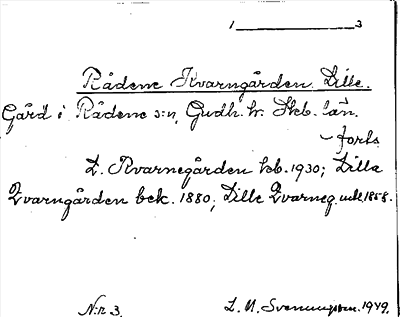 1 3
Rådene Kvarngården. Lille.
Gård i Rådene s:n, Gudh. hr. Skb. län.
~ forts.
L. Kvarnegården kb. 1930; Lilla
Qvarngården bek. 1880; Lille Qvarneg. utk. 1858.
N:r 3. L. M. Svenungsson. 1949.